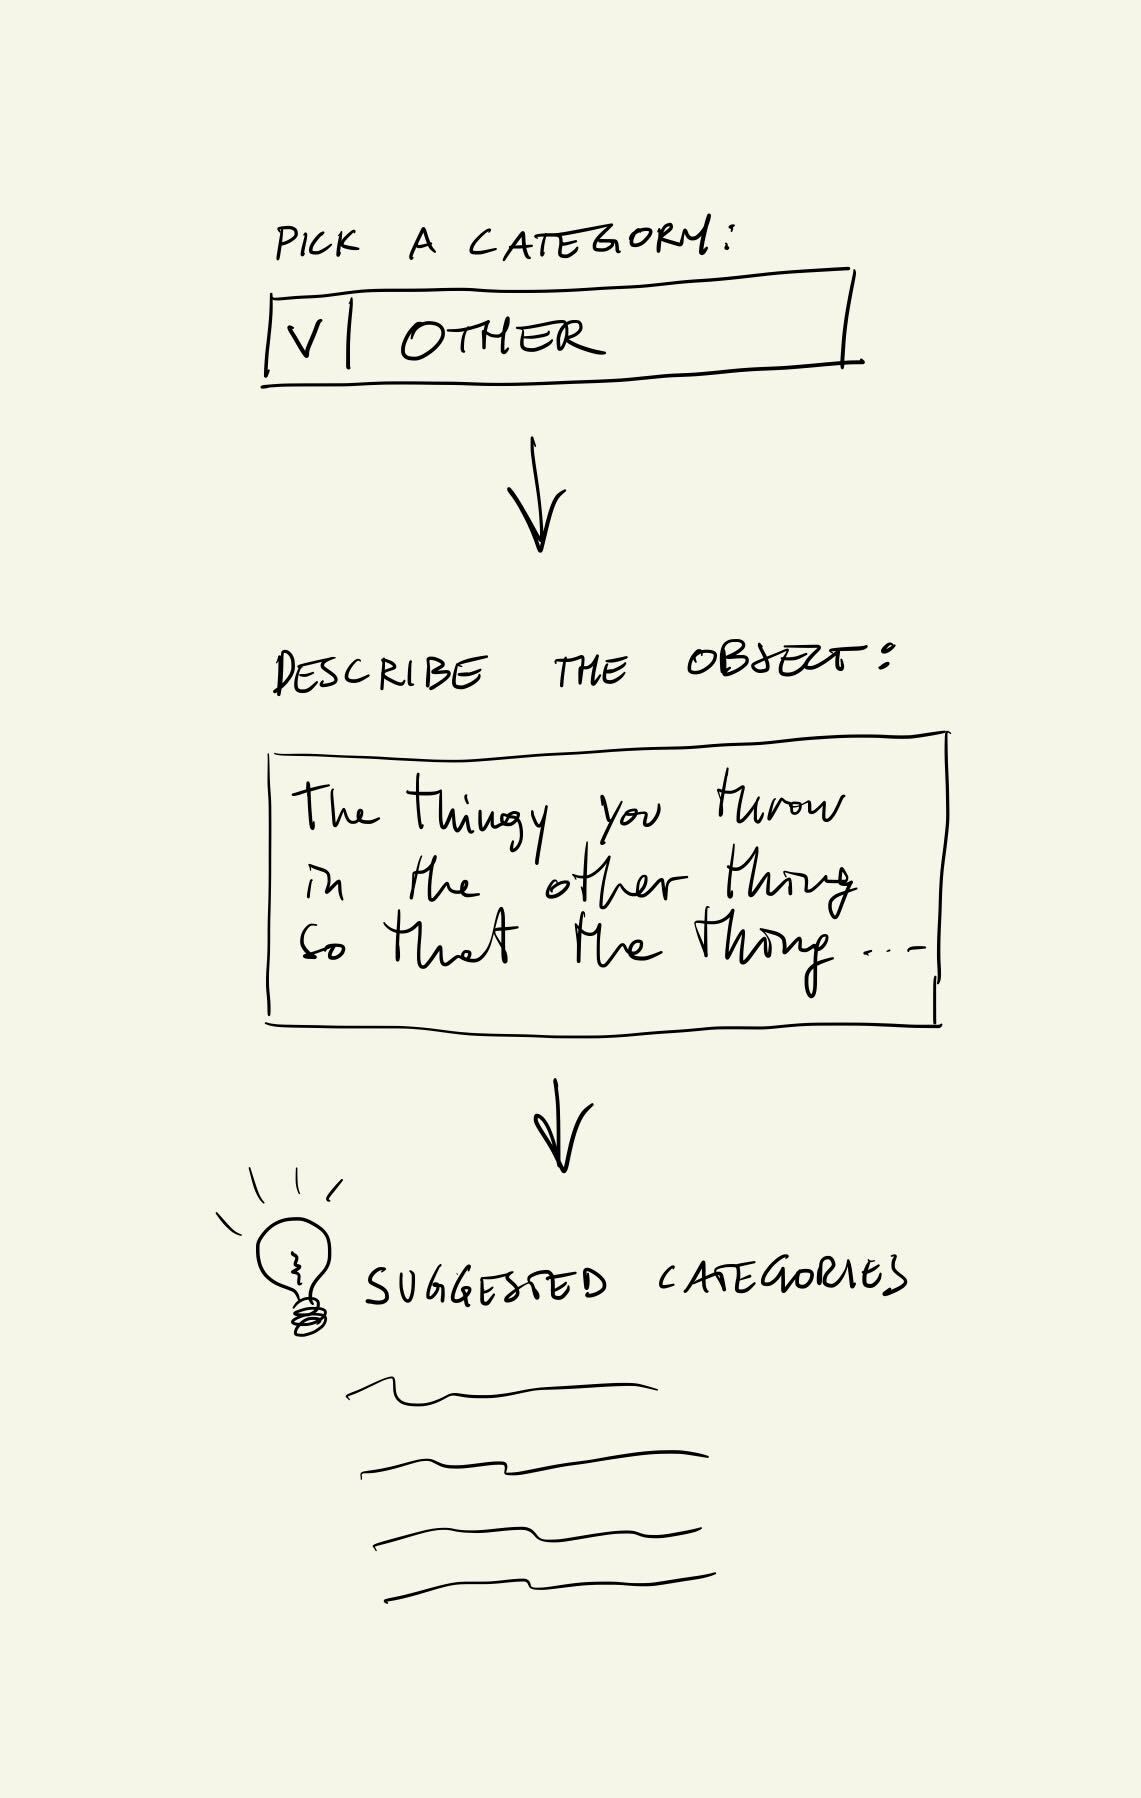 PICK A CATEGORY:
V OTHER
DESCRIBE THE OBJECT:
The thingy you throw
in the other thing
so that the thing ...
SUGGESTED CATEGORIES